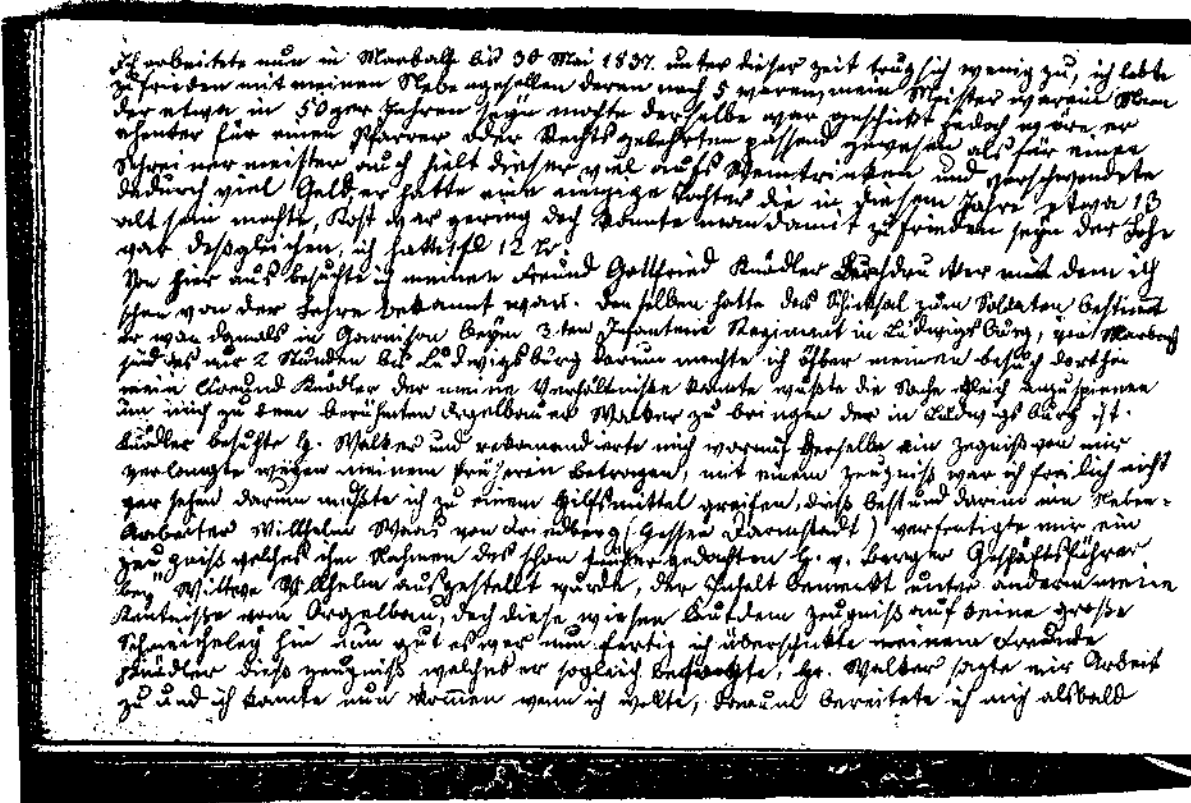 Ich arbeitete nun in Marbach bis 30 Mai 1837. unter dieser Zeit trug sich wenig zu, ich lebte
zufrieden mit meinen Nebengesellen deren noch 5 waren, mein Meister war ein Mann
der etwa in 50ger Jahren seyn mochte derselbe war geschickt jedoch wäre er
ehender für einen Pfarrer oder Rechtsgelehrten passend gewesen als für einen
Schreinermeister auch hielt dieser viel aufs Weintrinken und verschwendete
dadurch viel Geld, er hatte eine einzige Tochter die in diesem Jahre etwa 13
alt sein mochte, Kost war gering doch konnte man damit zufrieden seyn der Lohn
war desgleichen, ich hatte 1 fl 12 Kr.
Von hier aus besuchte ich meinen Freund Gottfried Knödler mit dem ich
schon von der Lehre bekannt war. Denselben hatte das Schicksal zum Soldaten bestimmt
er war damals in Garnison beym 3ten Infanterie Regiment in Ludwigsburg, von Marbach
sind es nur 2 Stunden bis Ludwigsburg darum machte ich öfter meinen besuch dorthin
mein Freund Knödler der meine Verhältniße kannte wußte die Sache gleich anzuspinnen
um mich zu dem berühmten Orgelbauer Walker zu bringen der in Ludwigsburg ist.
Knödler besuchte H. Walker und rekomandirte mich worauf derselbe ein Zeugniß von mir
verlangte wegen meinem früheren betragen, mit einem Zeugniß war ich freilich nicht
versehen darum mußte ich zu einem Hilfsmittel greifen, dieß bestund darin ein Neben-
Arbeiter Willhelm Waas von Friedberg (Hessen Darmstadt) verfertigte mir ein
Zeugniß welches im Nahmen des schon früher gedachten H. v. Berger Geschäftsführer
bey Wittwe Wilhelm ausgestellt wurde, der Inhalt bemerkt unter andern meine
Kentniße vom Orgelbau, doch diese wiesen laut dem Zeugniß auf keine große
Schmeicheley hin nun gut es war nun fertig ich überschickte meinem Freunde
Knödler dieß Zeugniß welches er sogleich besorgte, Hr. Walker sagte mir Arbeit
zu und ich konnte nun kommen wenn ich wollte, darum bereitete ich mich alsbald